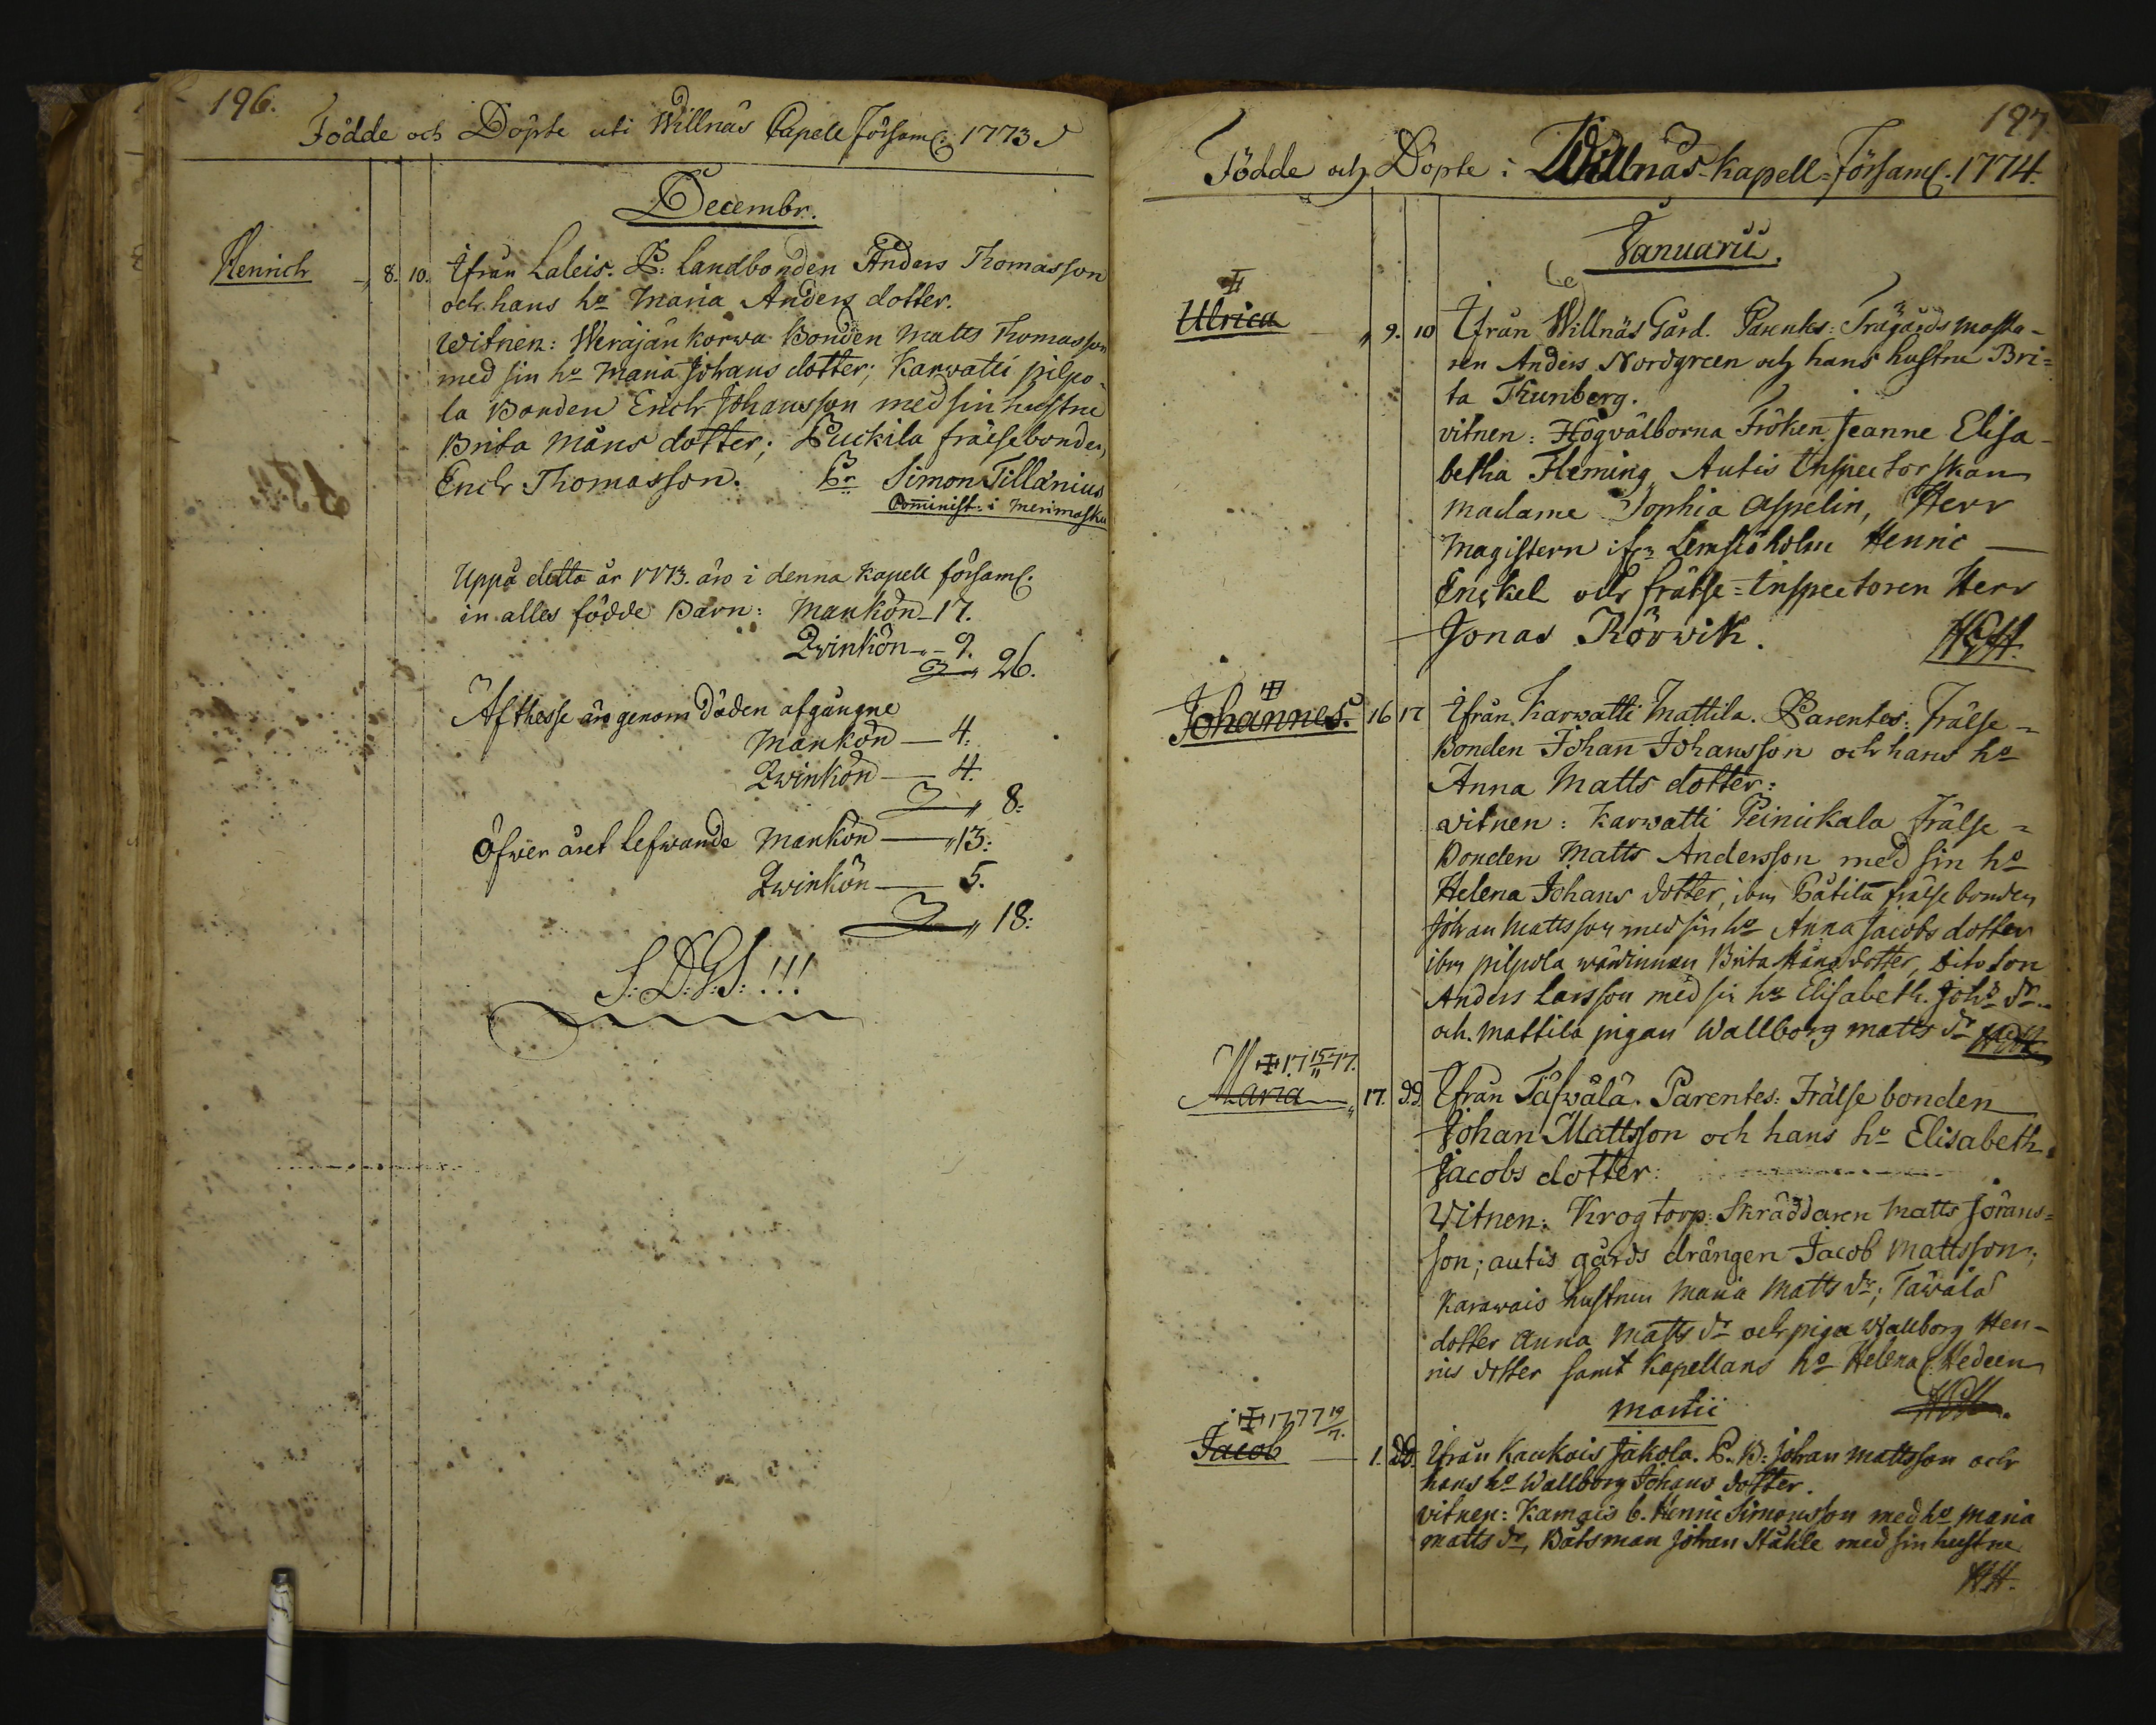 196.
Födde och Döpte uti Willnäs Capell Församl: 1773
Decembr.
Henrich 8. 10. Ifrån Laleis. P: Landbonden Anders Thomasson
och hans ho Maria Anders dotter.
Witnen: Weräjänkorwa Bonden Matts Thomasson
med sin ho Maria Johans dotter; Karwatti pilpo-
la Bonden Erich Johansson med sin hustru
Brita Måns dotter; Puckila frälsebonden
Erich Thomasson. Pr Simon Tillänius
Comminist: i Merimasku
Uppå detta år 1773. äro i denna Kapell församl.
in alles födde Barn: Mankön 17.
Qvinkön 9.
26.
Af thesse äro genom Döden afgångne
Mankön 4.
Qwinkön 4.
8:
Öfwer året lefwande Mankön 13:
Qwinkön 5.
18:
S: D: G: S: !!!
197.
Födde och Döpte i Willnäs Kapell-Församl. 1774.
Januarii.
Ulrica 9. 10 Ifrån Willnäs Gård. Parentes: Trägårds mästa-
ren Anders Nordgreen och hans hustru Bri-
ta Thunberg.
vitnen: Högvälborna Fröken Jeanne Elisa-
betha Fleming, Autis Inspectorskan
Madame Sophia Aspelin, Herr
Magistern ifrn Lemsiöholm Henric
Enckel och frälse-Inspectoren Herr
Jonas Rörwik.
Johannes. 16 17 Ifrån Karwatti Mattila. Parentes: Frälse-
Bonden Johan Johansson och hans ho
Anna Matts dotter:
witnen: Karwatti Peinickala Frälse-
Bonden Matts Andersson med sin ho
Helena Johans dotter, ibm Påtila frälse bonden
Johan Mattsson med sin ho Anna Jacobs dotter
ibm pilpola wärdinnan Brita Måns dotter, Dito Son
Anders Larsson med sin ho Elisabeth Johs dr
och Mattila pigan Wallborg Matts dr
17 15/11 77.
Maria 17. dd. Ifrån Täfwälä. Parentes: Frälse bonden
Johan Mattsson och hans ho Elisabeth
Jacobs dotter:
Witnen: Krogtorp: Skräddaren Matts Jörans-
son; autis gårds drängen Jacob Mattsson;
Karawais hustrun Maria Matts dr; Täwälä
dotter Anna Matts dr och piga Wallborg Hen-
ris dotter samt Kapellans ho Helena C. Hedeen
Martii
1777 19/7.
Jacob 1. dd. Ifrån Kaukois Jakola. P. B: Johan Mattsson och
hans ho Wallborg Johans dotter.
vitnen: Kamois b. Henric Simonsson med ho Maria
Matts dr, Båtsman Johan Ståhle med sin hustru
H.H.